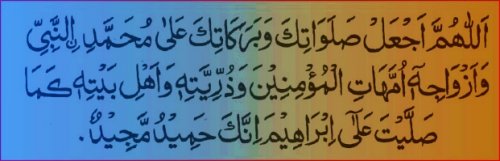 اَللّٰهُمَّ اجْعَلْ صَلَوَاتِكَ وَبَرَكَاتِكَ عَلٰى مُحَمَّدِ ۨالنَّبِيِّ
وَاَزْوَاجِهٖٓ اُمَّهَاتِ الْمُؤْمِنِيْنَ وَذُرِّيَّتِهٖ وَاَهْلِ بَيْتِهٖ كَمَا
صَلَّيْتَ عَلٰٓى اِبْرَاهِيْمَ اِنَّكَ حَمِيْدٌ مَّجِيْدٌ.